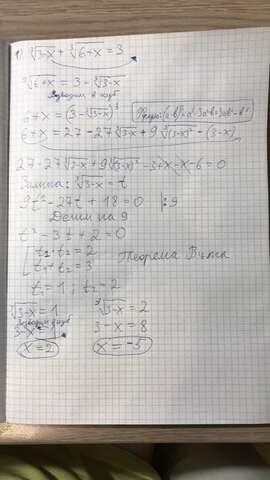 1) ∛3-x + ∛6+x = 3
∛6+x = 3 - ∛3-x
Возводим в куб
6+x = (3-∛3-x)³ Формула: (a-b)³=a³-3a²b+3ab²-b³
6+x = 27-27∛3-x + 9∛(3-x)² - (3-x)
27-27∛3-x + 9∛(3-x)² - 3+x-x-6=0
Замена: ∛3-x = t
9t² - 27t + 18 = 0 |:9
Делим на 9
t² - 3t + 2 = 0
t₁·t₂ = 2
t₁+t₂ = 3 Теорема Виета
t₁ = 1 ; t₂ = 2
∛3-x = 1 ∛3-x = 2
Возводим в куб
3-x = 1 3-x = 8
x = 2 x = -5